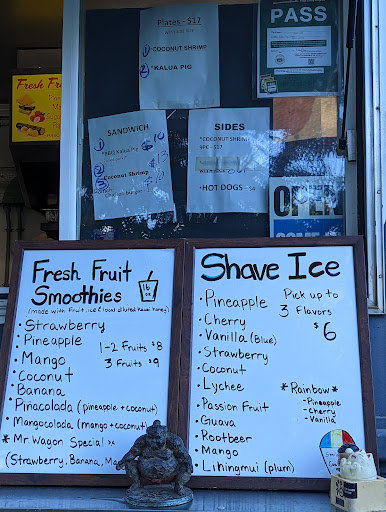 Plates - $17
*COCONUT SHRIMP
*KALUA PIG
PASS
Fresh Fr
SANDWICH
*BBQ Kalua Pig
*Coconut Shrimp
SIDES
*COCONUT SHRIMP
*HOT DOGS
OPEN
Fresh Fruit
Smoothies
16
oz
(made with fruit, ice & local diluted Kauai honey)
• Strawberry
• Pineapple
• Mango
1-2 Fruits $8
3 Fruits $9
• Coconut
• Banana
• Pinacolada (pineapple + coconut)
• Mangocolada (mango + coconut)
* Mr. Wagon Special
(Strawberry, Banana, Ma
Shave Ice
• Pineapple
• Cherry
• Vanilla (blue)
• Strawberry
• Coconut
• Lychee
• Passion Fruit
• Guava
• Rootbeer
• Mango
• Lihingmui (plum)
Pick up to
3 Flavors
$6
*Rainbow*
- Pineapple
- Cherry
- Vanilla